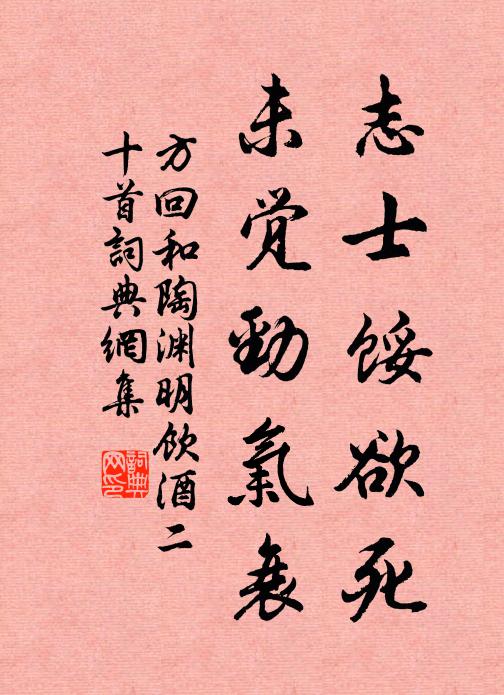 志士馁欲死
未觉劲氣衰
方回和陶渊明饮酒二
十首詞典網集
詞典网印